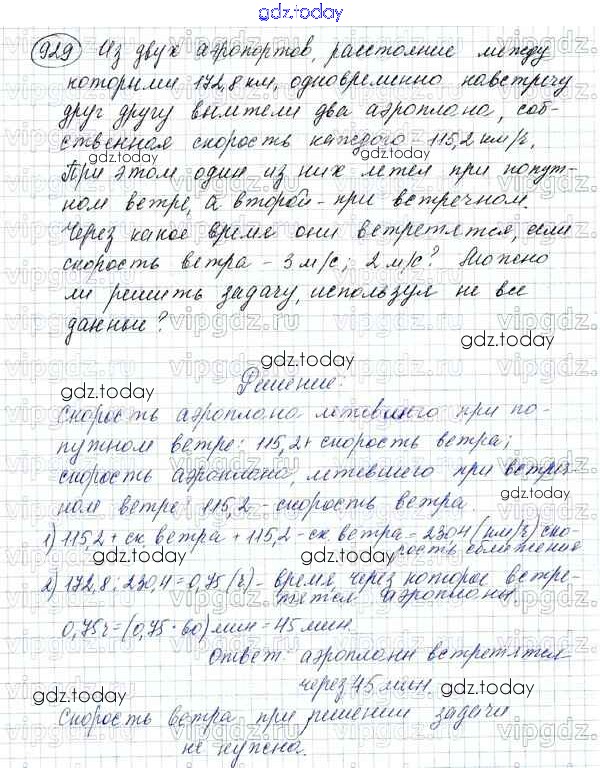 gdz.today
929 Из двух аэропортов, расстояние между
которыми 172,8 км, одновременно навстречу
друг другу вылетели два аэроплана, соб-
ственная скорость каждого 115,2 км/ч.
gdz.today gdz.today
При этом один из них летел при попут-
ном ветре, а второй - при встречном.
Через какое время они встретятся, если
скорость ветра - 3 м/с; 2 м/с? Можно
ли решить задачу, используя не все
данные?
vipgdz.ru vipgdz.ru
gdz.today
gdz.today gdz.today
Решение:
Скорость аэроплана летевшего при по-
путном ветре: 115,2 + скорость ветра;
скорость аэроплана, летевшего при встреч-
ном ветре: 115,2 - скорость ветра.
gdz.today gdz.today
1) 115,2 + ск ветра + 115,2 - ск ветра = 230,4 (км/ч) ско-
рость сближения
gdz.today gdz.today
2) 172,8 : 230,4 = 0,75 (ч) - время, через которое встре-
тятся аэропланы
0,75 ч = (0,75 · 60) мин = 45 мин.
Ответ: аэропланы встретятся
через 45 мин.
gdz.today gdz.today
Скорость ветра при решении задачи
не нужна.
gdz.today